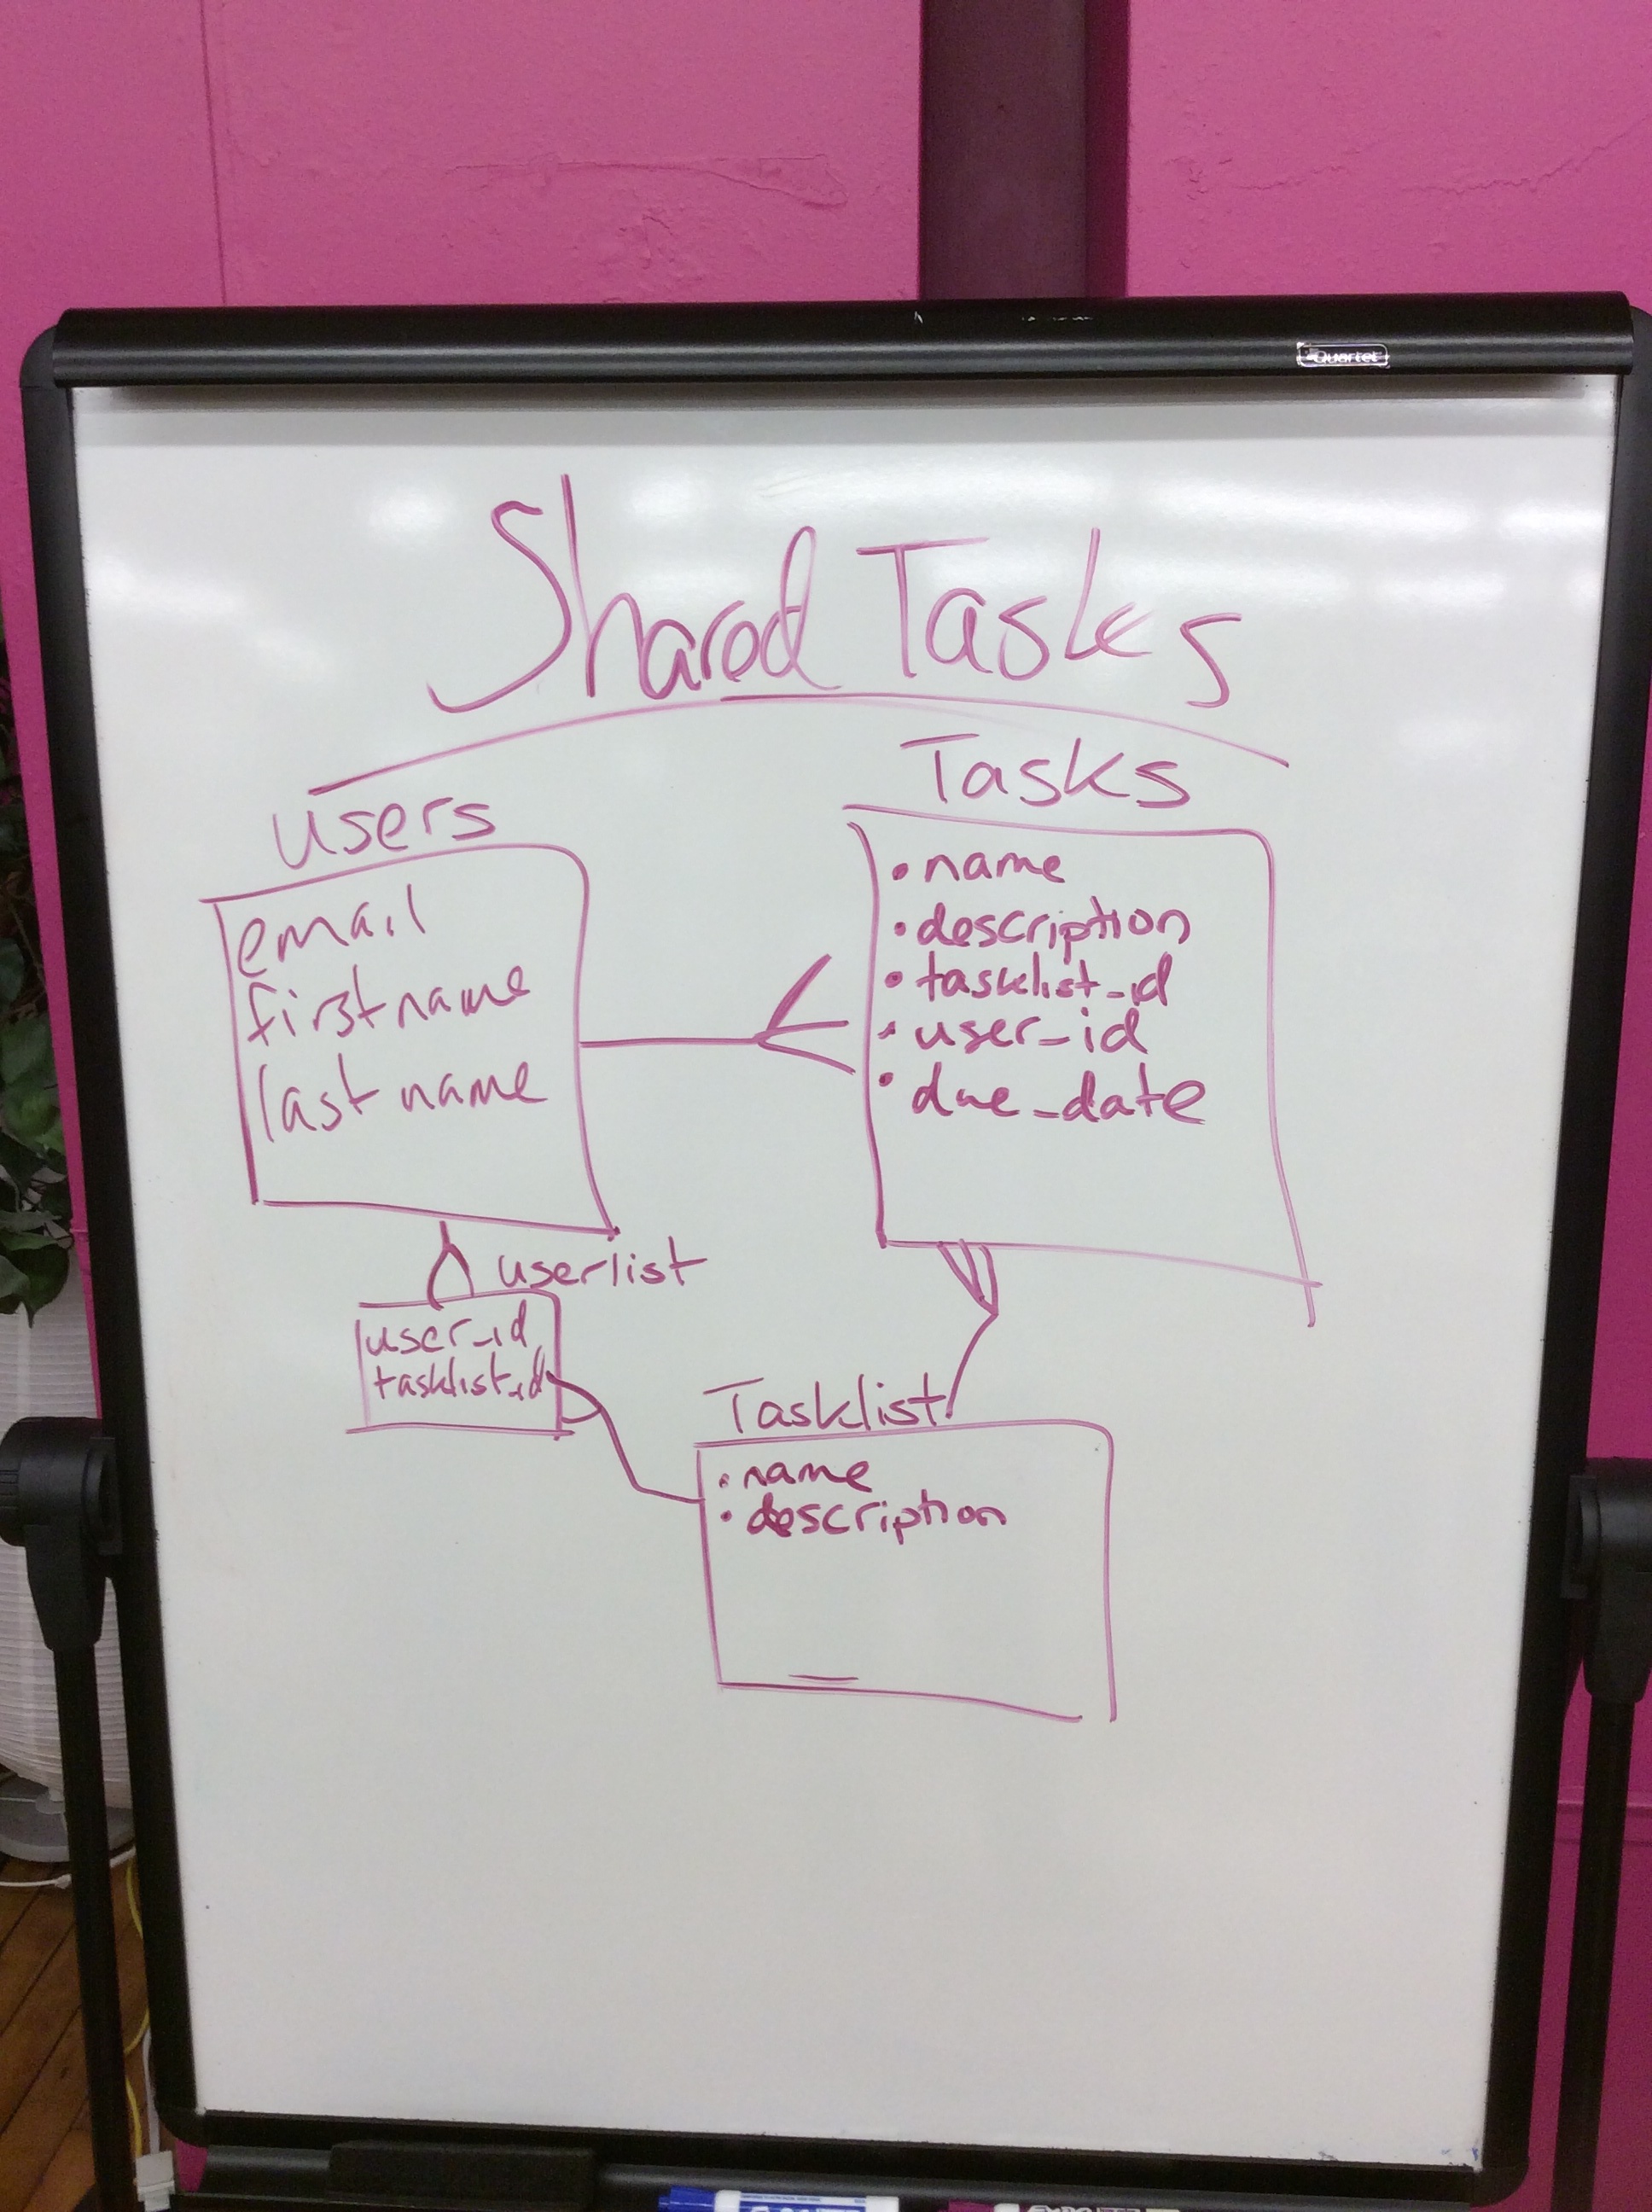 Quartet
Shared Tasks
users
email
firstname
last name
Tasks
• name
• description
• tasklist_id
• user_id
• due_date
userlist
user_id
tasklist_id
Tasklist
• name
• description